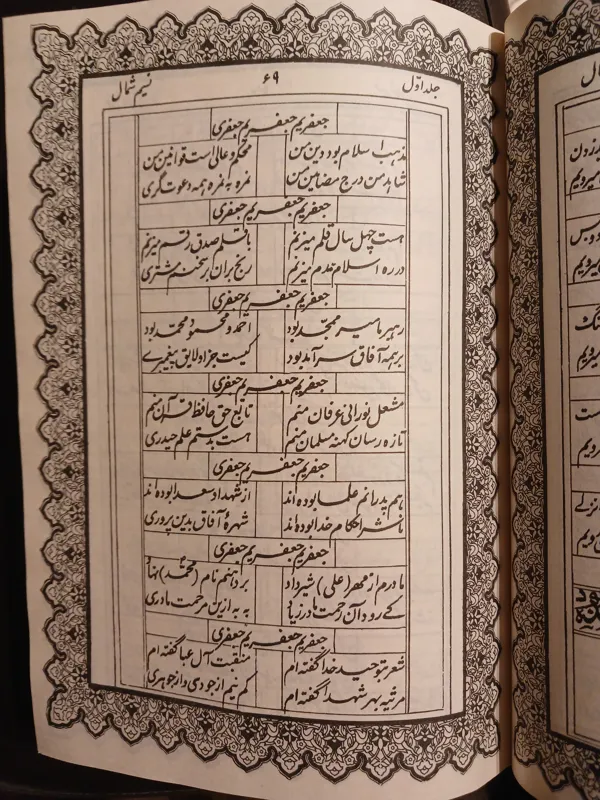 جلد اوّل ۶۹ نسیم شمال
جعفریم جعفریم جعفری
مذهب اسلام بود دین من محکم و عالی است قوانین من
شاهد من درج مضامین من غمزه به غمزه همه دعوتگری
جعفریم جعفریم جعفری
هست چهل سال قلم میزنم با قلم صدق رقم میزنم
در ره اسلام قدم میزنم رنج بران بر سخنم مشتری
جعفریم جعفریم جعفری
رهبر ما سیر ممجّد بود احمد و محمود و محمّد بود
بر همه آفاق سرآمد بود کیست جز او لایق پیغمبری
جعفریم جعفریم جعفری
مشعل نورانی عرفان منم تابع حق حافظ قرآن منم
تازه رسان کهنه مسلمان منم هست بدستم علم حیدری
جعفریم جعفریم جعفری
هم پدرانم علما بوده اند از شهدا و سعدا بوده اند
ناشر احکام خدا بوده اند شهرهٔ آفاق بدین پروری
جعفریم جعفریم جعفری
مادرم از مهر (علی) شیر داد بر دهنم نام (محمّد) نهاد
کی رود آن زحمت مادر ز یاد به به از این مرحمت مادری
جعفریم جعفریم جعفری
شعر توحید خدا گفته ام منقبت آل عبا گفته ام
مرثیه بهر شهدا گفته ام کم نیم از جودی و از جوهری